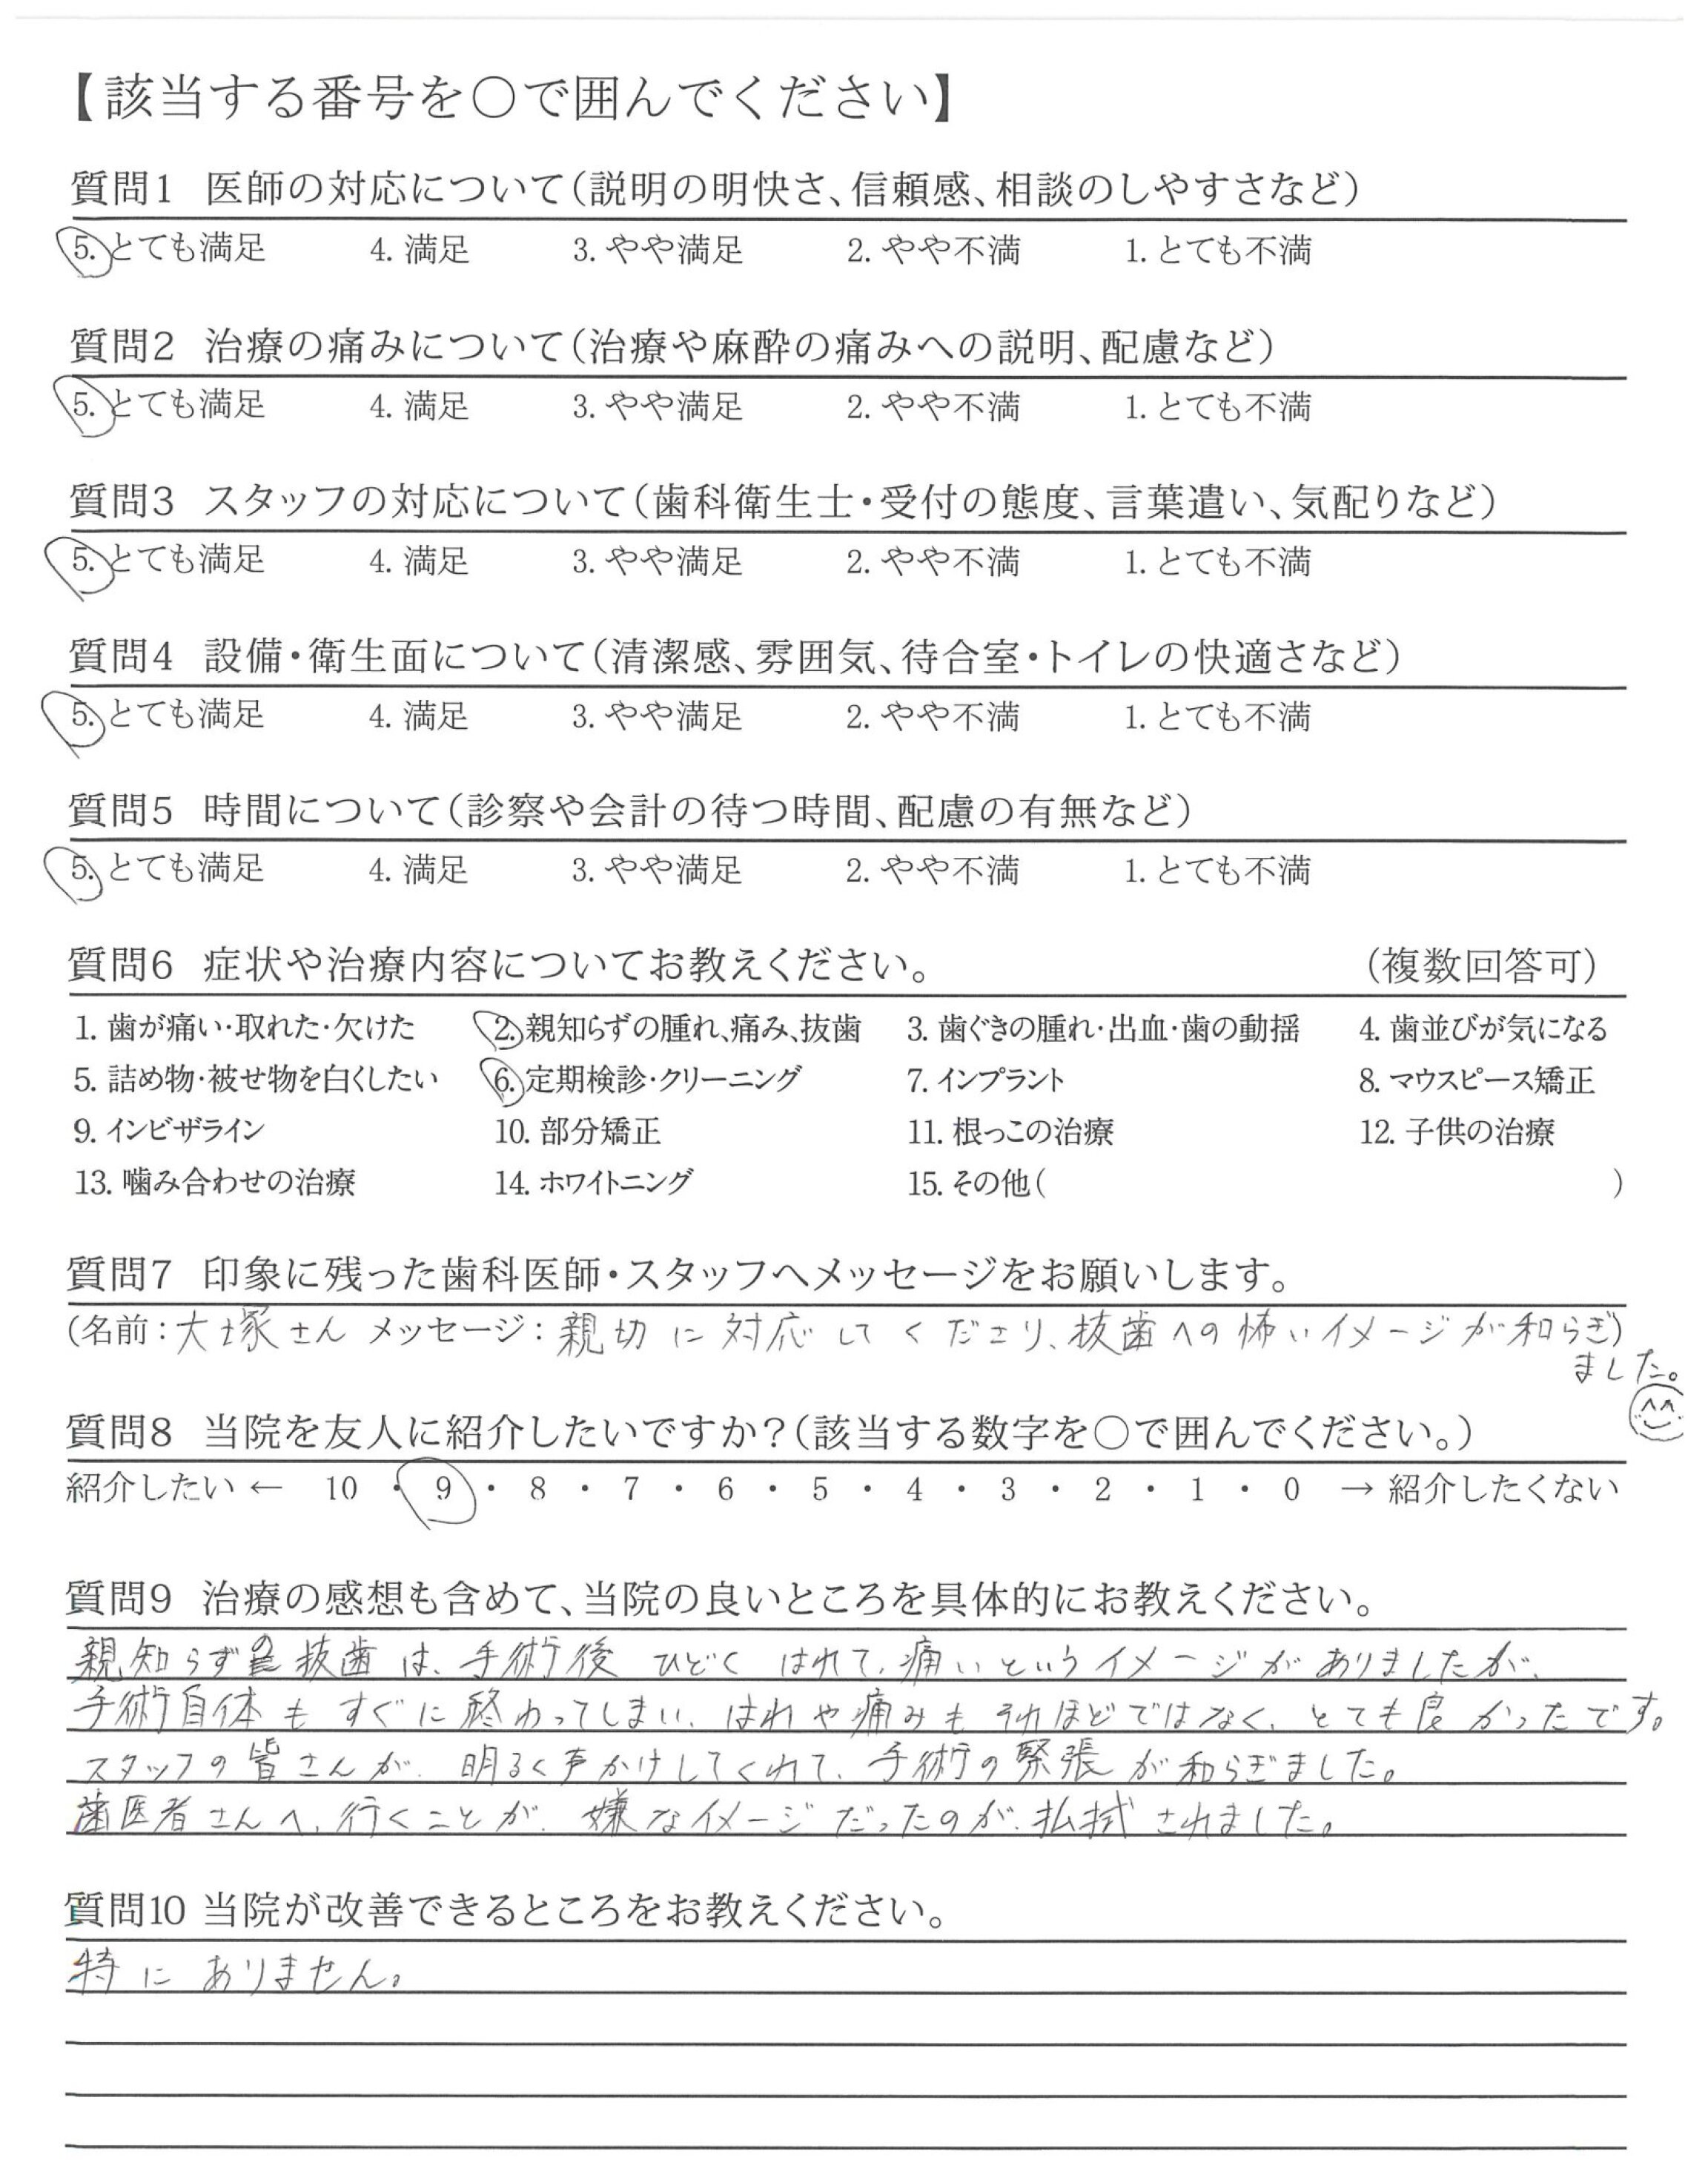 【該当する番号を〇で囲んでください】
質問1 医師の対応について（説明の明快さ、信頼感、相談のしやすさなど）
5. とても満足 4. 満足 3. やや満足 2. やや不満 1. とても不満
質問2 治療の痛みについて（治療や麻酔の痛みへの説明、配慮など）
5. とても満足 4. 満足 3. やや満足 2. やや不満 1. とても不満
質問3 スタッフの対応について（歯科衛生士・受付の態度、言葉遣い、気配りなど）
5. とても満足 4. 満足 3. やや満足 2. やや不満 1. とても不満
質問4 設備・衛生面について（清潔感、雰囲気、待合室・トイレの快適さなど）
5. とても満足 4. 満足 3. やや満足 2. やや不満 1. とても不満
質問5 時間について（診察や会計の待つ時間、配慮の有無など）
5. とても満足 4. 満足 3. やや満足 2. やや不満 1. とても不満
質問6 症状や治療内容についてお教えください。 （複数回答可）
1. 歯が痛い・取れた・欠けた 2. 親知らずの腫れ、痛み、抜歯 3. 歯ぐきの腫れ・出血・歯の動揺 4. 歯並びが気になる
5. 詰め物・被せ物を白くしたい 6. 定期検診・クリーニング 7. インプラント 8. マウスピース矯正
9. インビザライン 10. 部分矯正 11. 根っこの治療 12. 子供の治療
13. 噛み合わせの治療 14. ホワイトニング 15. その他（ ）
質問7 印象に残った歯科医師・スタッフへメッセージをお願いします。
（名前：大塚さん メッセージ：親切に対応してくださり、抜歯への怖いイメージが和らぎ）
ました。
質問8 当院を友人に紹介したいですか？（該当する数字を〇で囲んでください。）
紹介したい ← 10 ・ 9 ・ 8 ・ 7 ・ 6 ・ 5 ・ 4 ・ 3 ・ 2 ・ 1 ・ 0 → 紹介したくない
質問9 治療の感想も含めて、当院の良いところを具体的にお教えください。
親知らずの抜歯は、手術後ひどくはれて、痛いというイメージがありましたが、
手術自体もすぐに終わってしまい、はれや痛みもそれほどではなく、とても良かったです。
スタッフの皆さんが、明るく声かけしてくれて、手術の緊張が和らぎました。
歯医者さんへ、行くことが、嫌なイメージだったのが、払拭されました。
質問10 当院が改善できるところをお教えください。
特にありません。